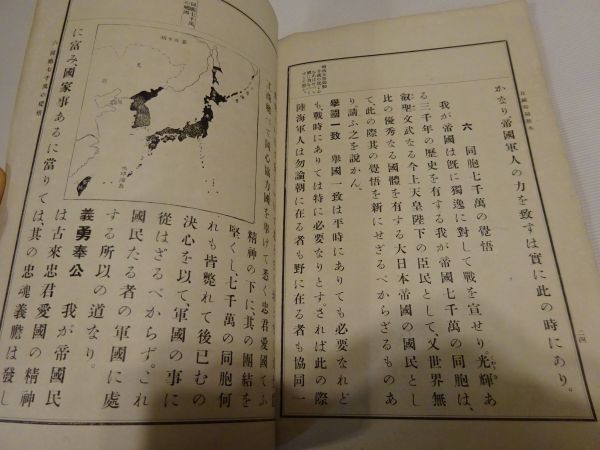 かなり、帝國軍人の力を致すは實に此の時にあり。
六 同胞七千萬の覺悟
我が帝國は既に獨逸に對して戰を宣せり、光輝あ
る三千年の歷史を有する我が帝國七千萬の同胞は、
叡聖文武なる今上天皇陛下の臣民として、又世界無
比の優秀なる國體を有する大日本帝國の國民とし
て、此の際其の覺悟を新にせざるべからざるものあ
り、請ふ之を說かん。
擧國一致 擧國一致は平時にありても必要なれど
も、戰時にありては特に必要なりとす。されば此の際
陸海軍人は勿論、朝に在る者も野に在る者も協同一
二四
同心協力、國を擧げて悉く忠君愛國てふ
精神の下に、其の團結を
堅くし、七千萬の同胞何
れも皆斃れて後已むの
決心を以て、軍國の事に
從はざるべからず。これ
國民たる者の軍國に處
する所以の道なり。
義勇奉公 我が帝國民
は古來忠君愛國の精神
に富み、國家事あるに當りては、其の忠魂義膽は發し